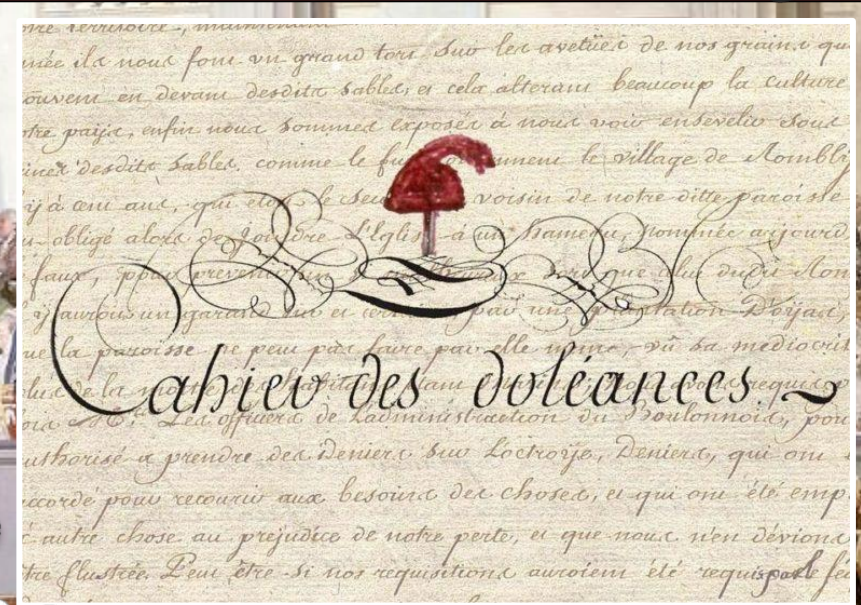 notre territoire, maintenant
année ils nous font un grand tort sur les avetües de nos grains qu
trouvent en devant desdits sables, et cela alterant beaucoup la culture
notre païs, enfin nous sommes exposés à nous voir ensevelir sous
desdits sables. comme le fu le village de Rombly
y à cent ans, qui etoit le seu voisin de notre ditte paroisse
obligé alors de joindre l'Eglise à un hameau, nommée aujourd
faux, pour prevenir un que du
y auroit un garand sur et par une plantation D'oyas,
la paroisse ne peut pas faire par elle même, vû sa mediocrit
Cahier des doléances.
plus de la habitans requis
Mrs. Les officiers de Ladministration du Boulonnois, pour
authorisé a prendre des Deniers sur Loctroye, Deniers, qui ont
accordé pour recourir aux besoins des choses, et qui ont été emp
autre chose au prejudice de notre perte, et que nous n'en dévions
être flustrée. Peut être si nos requisitions auroient été requis